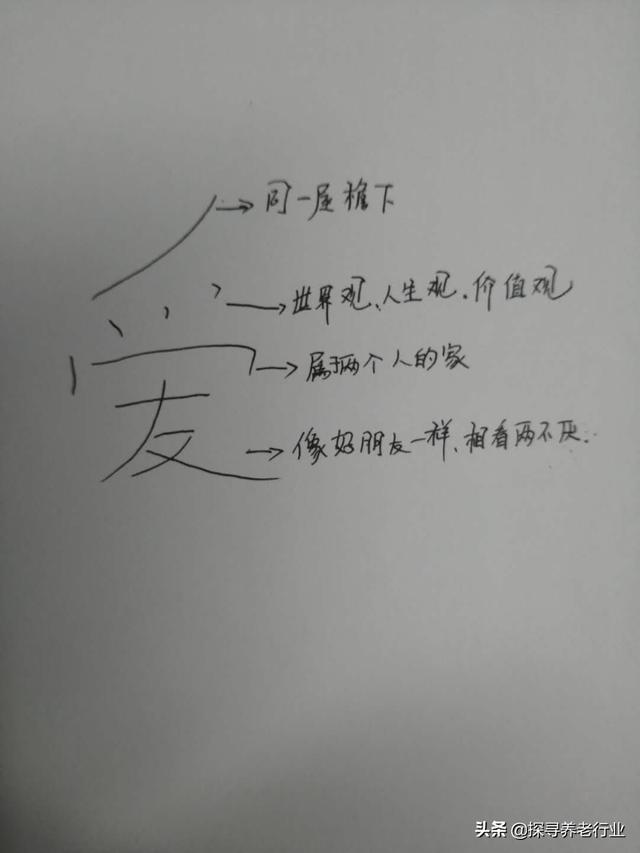 同一屋檐下
世界观、人生观、价值观
属于两个人的家
爱
像好朋友一样、相看两不厌.
头条 @探寻养老行业